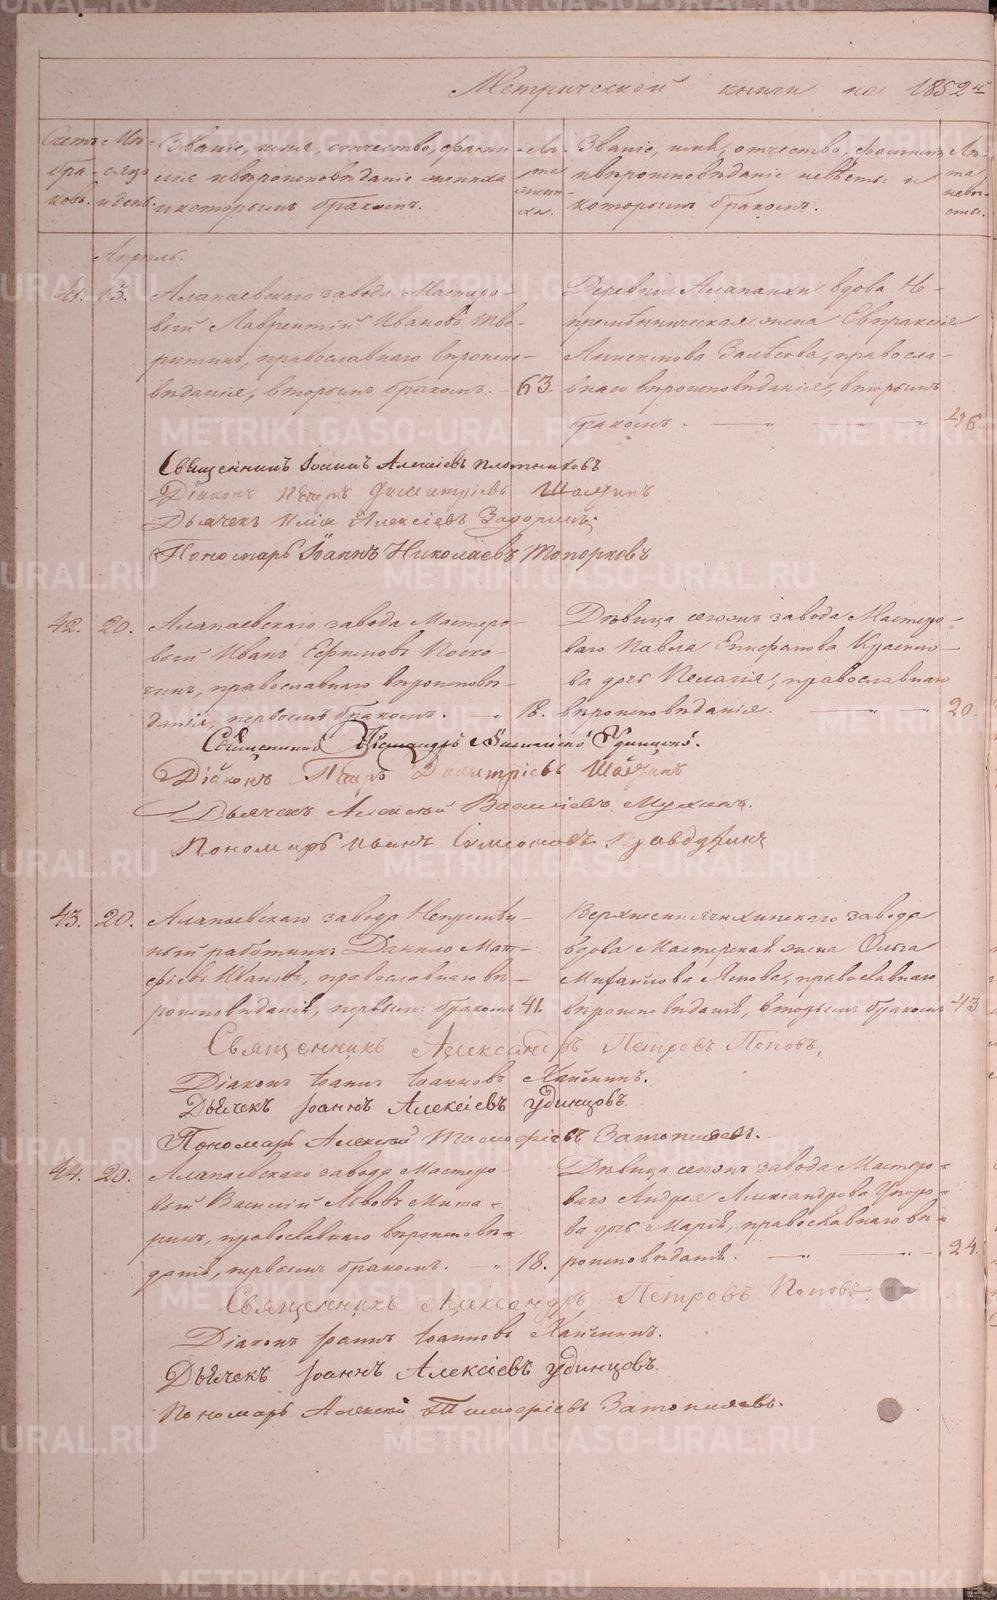 Метрической книги на 1852 й
Счетъ бра-ковъ.
Мѣ-сяцъ и день.
Званіе, имя, отчество, фами-
лія и вѣроисповѣданіе жениха
и которымъ бракомъ.
Лѣ-та жени-ха.
Званіе, имя, отчество, фамилія
и вѣроисповѣданіе невѣсты и
которымъ бракомъ.
Лѣ-та невѣ-сты.
Апрѣль.
41. 13. Алапаевскаго завода Мастеро-
вый Лаврентій Ивановъ Тво-
ритинъ, православнаго вѣроиспо-
вѣданія, вторымъ бракомъ. 63.
Деревни Алапахи вдова Не-
премѣнническая жена Евпраксія
православ-
наго вѣроисповѣданія, вторымъ
бракомъ. 46.
Священникъ Іоаннъ Алексіевъ Плотниковъ
Діаконъ Петръ Димитріевъ
Дьячекъ Илія Алексіевъ Задоринъ.
Пономарь Іоаннъ Николаевъ Топорковъ
42. 20. Алапаевскаго завода Мастеро-
вый Иванъ Ефимовъ Поско-
чинъ, православнаго вѣроисповѣ-
данія, первымъ бракомъ. 18.
Дѣвица сегожъ завода Мастеро-
ваго Павла Епифанова
дочь Пелагія, православнаго
вѣроисповѣданія. 20.
Священникъ Удинцовъ.
Діаконъ Петръ Димитріевъ
Дьячекъ Алексѣй Васильевъ
Пономарь Иванъ Симеоновъ Правдухинъ
43. 20. Алапаевскаго завода Непремѣн-
ный работникъ Данило Мат-
фіевъ Ивановъ, православнаго вѣ-
роисповѣданія, первымъ бракомъ 41.
Верхнесинячихинскаго завода
вдова Мастерская жена Ольга
Михайлова православнаго
вѣроисповѣданія, вторымъ бракомъ 43
Священникъ Александръ Петровъ Поповъ,
Діаконъ Іоаннъ Іоанновъ
Дьячекъ Іоаннъ Алексіевъ Удинцовъ.
Пономарь Алексѣй Тимофіевъ Затопляевъ.
44. 20. Алапаевскаго завода Мастеро-
вый Василій Львовъ
православнаго вѣроисповѣ-
данія, первымъ бракомъ. 18.
Дѣвица сегожъ завода Мастеро-
ваго Андрея Александрова Упоро-
ва дочь Марія, православнаго вѣ-
роисповѣданія. 24.
Священникъ Александръ Петровъ Поповъ
Діаконъ Іоаннъ Іоанновъ
Дьячекъ Іоаннъ Алексіевъ Удинцовъ.
Пономарь Алексѣй Тимофіевъ Затопляевъ.
METRIKI.GASO-URAL.RU